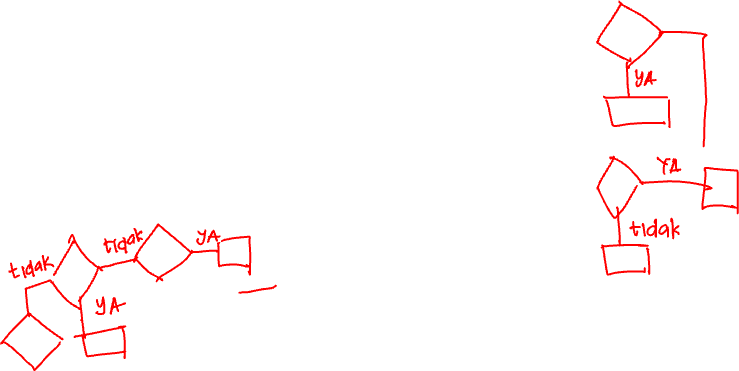 YA
YA
tidak
tidak
YA
tidak
YA